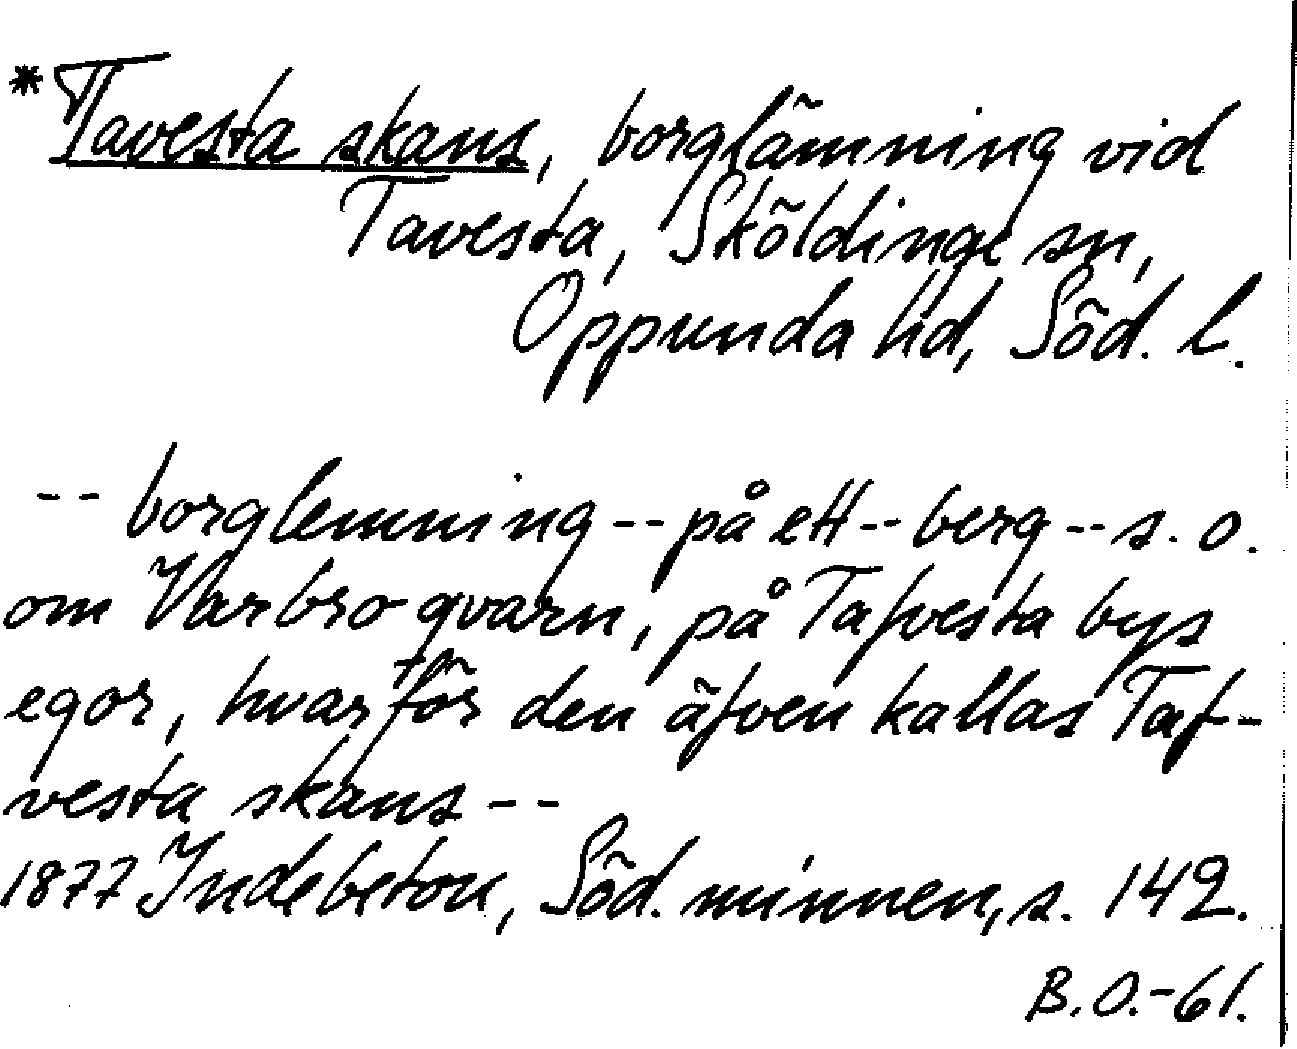 *Tavesta skans, borglämning vid
Tavesta, Sköldinge sn,
Oppunda hd, Söd. l.
-- borglemning -- på ett -- berg -- s. o.
om Varbro qvarn, på Tafvesta bys
egor, hvarför den äfven kallas Taf-
vesta skans --
1877 Indebetou, Söd. minnen, s. 142.
B.O.-61.